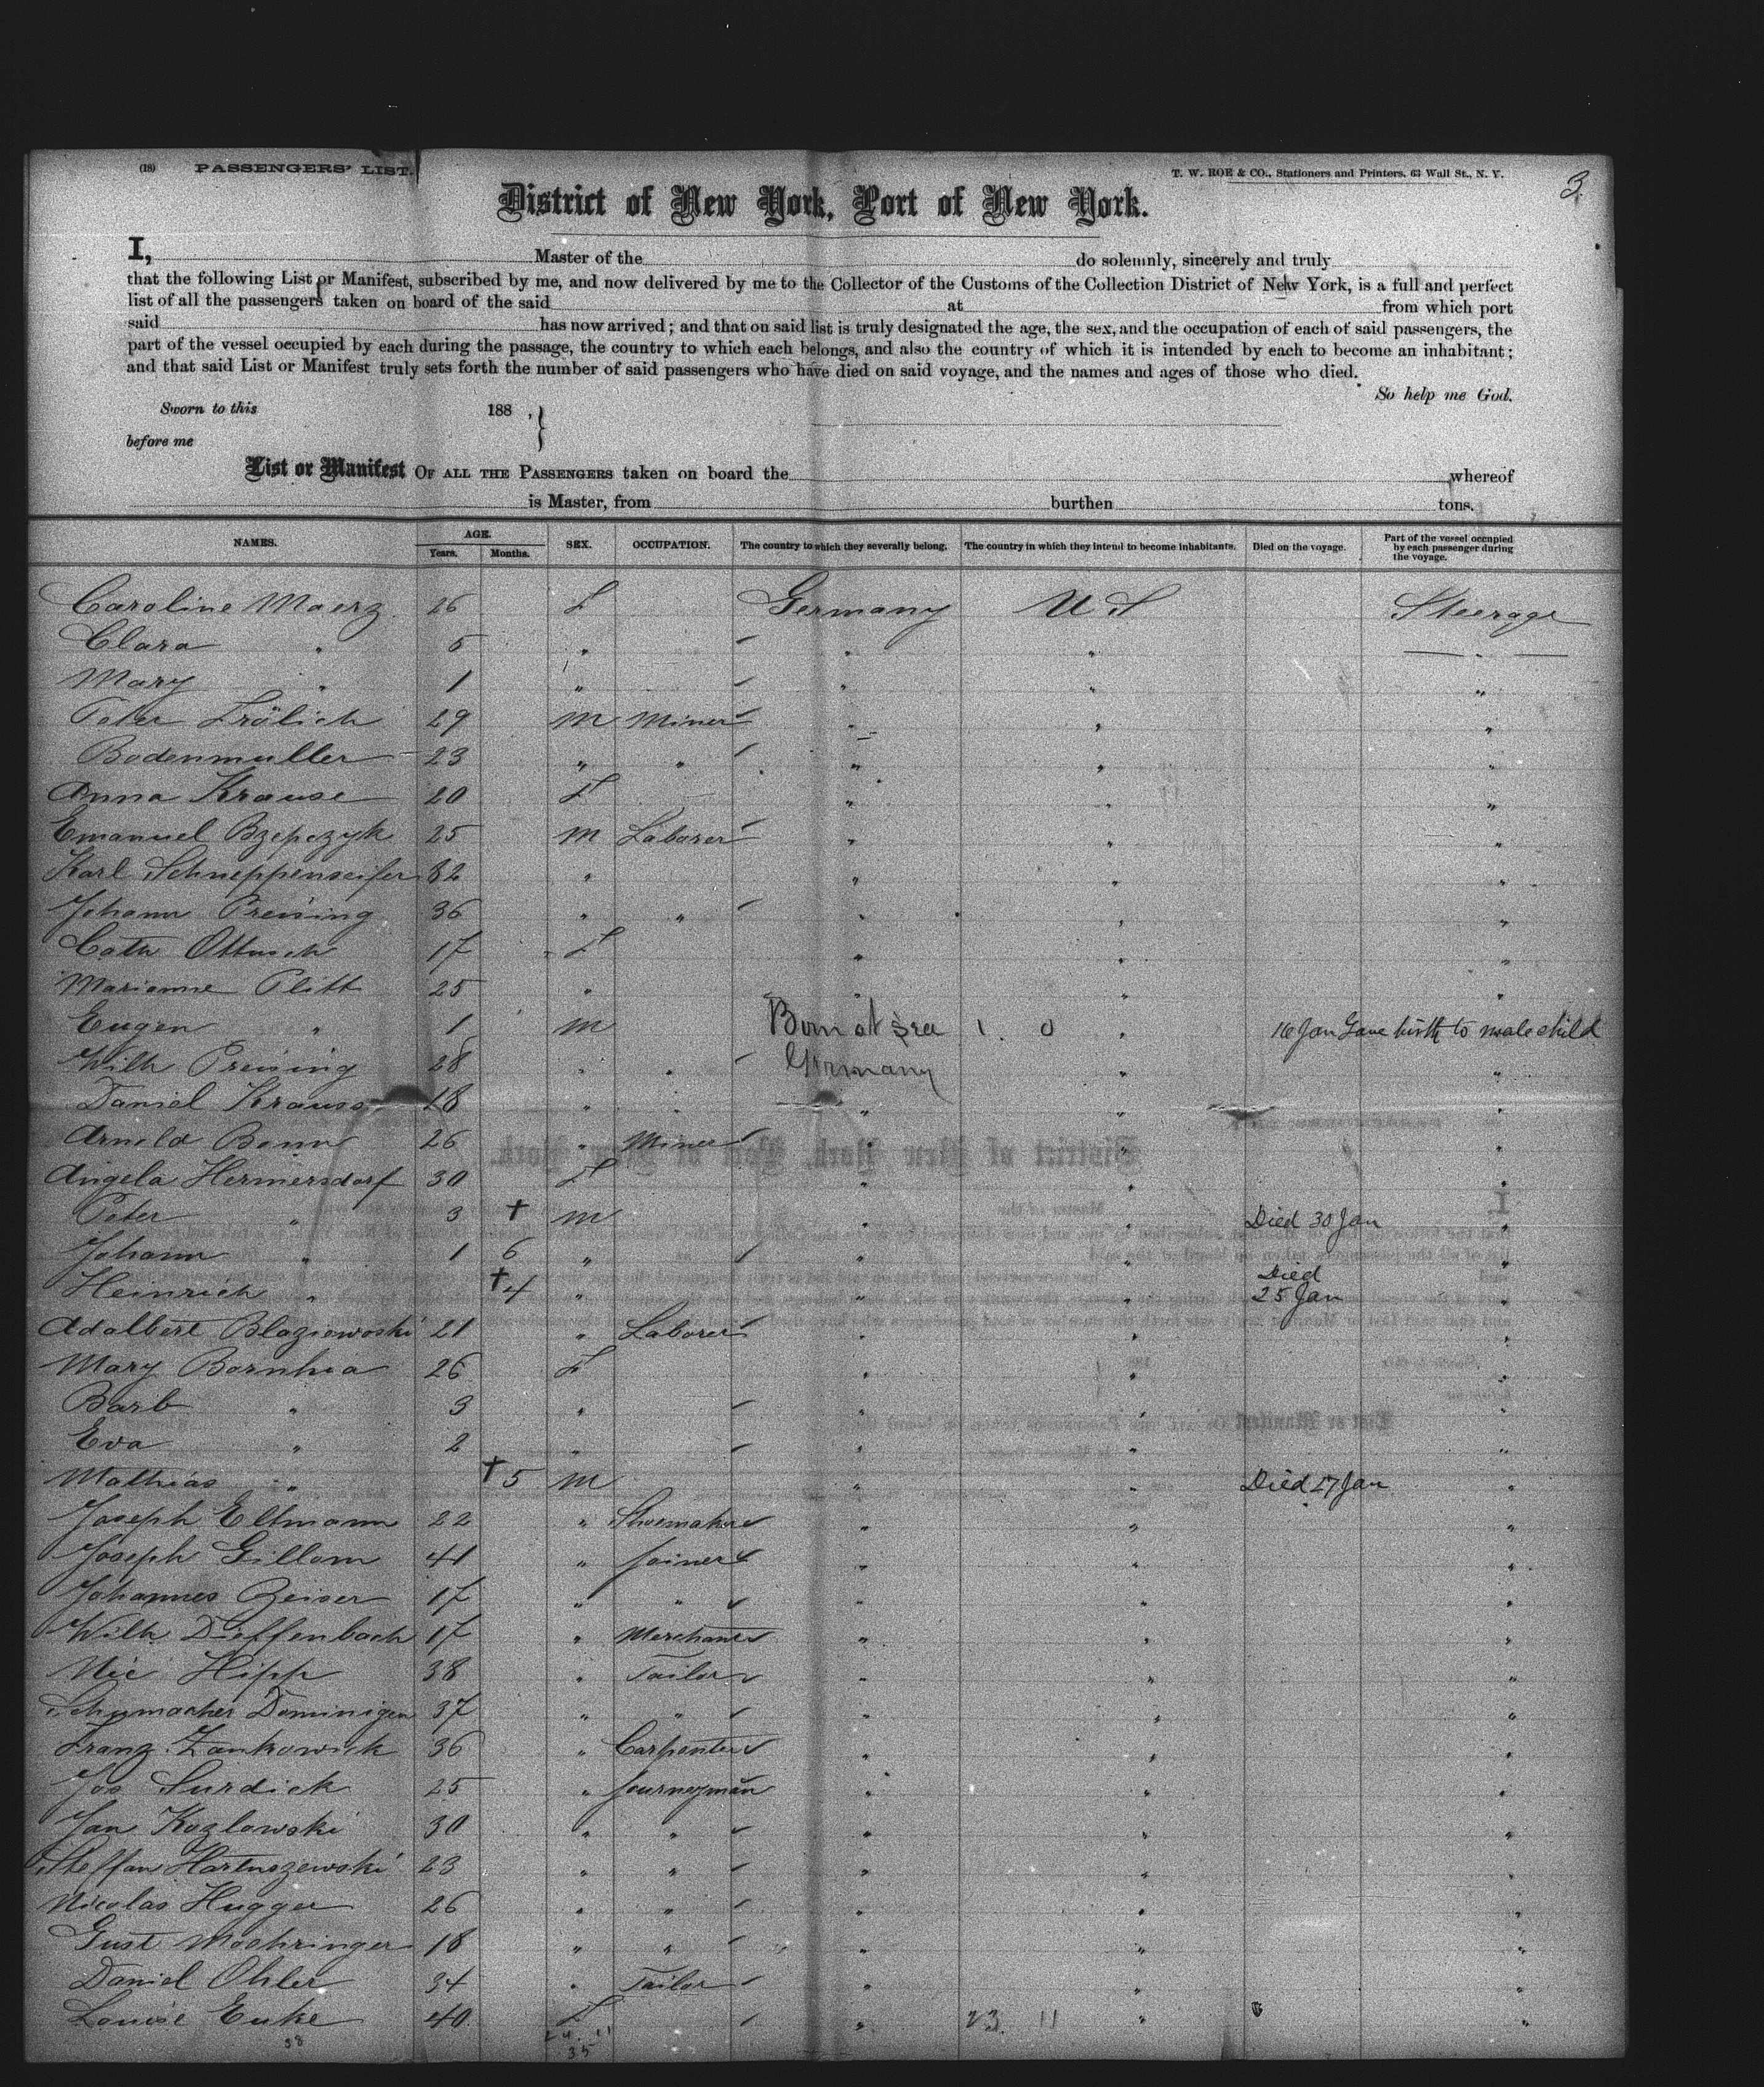 (18) PASSENGERS' LIST.
T. W. ROE & CO., Stationers and Printers, 63 Wall St., N. Y.
3
District of New York, Port of New York.
I, Master of the do solemnly, sincerely and truly
that the following List or Manifest, subscribed by me, and now delivered by me to the Collector of the Customs of the Collection District of New York, is a full and perfect
list of all the passengers taken on board of the said at from which port
said has now arrived; and that on said list is truly designated the age, the sex, and the occupation of each of said passengers, the
part of the vessel occupied by each during the passage, the country to which each belongs, and also the country of which it is intended by each to become an inhabitant;
and that said List or Manifest truly sets forth the number of said passengers who have died on said voyage, and the names and ages of those who died.
So help me God.
Sworn to this 188 ,
before me
List or Manifest OF ALL THE PASSENGERS taken on board the whereof
is Master, from burthen tons.
NAMES. AGE. Years. Months. SEX. OCCUPATION. The country to which they severally belong. The country in which they intend to become inhabitants. Died on the voyage. Part of the vessel occupied by each passenger during the voyage.
Caroline Maerz 26 F Germany U S Steerage
Clara " 5 " " " "
Mary " 1 " " " "
Peter Frölich 29 M Miner " " "
Bodenmuller 23 " " " " "
Anna Krause 20 F " " "
Emanuel Bzepczyk 25 M Laborer " " "
Karl Schneppenseifer 32 " " " "
Johann Preising 36 " " " " "
Cath 17 F " " "
Marianne Plitt 25 " " " "
Eugen " 1 M Born at Sea 1. 0 " 16 Jan Gave birth to male child
Wilh Preising 28 " " Germany " "
Daniel Krauss 18 " " " " "
Arnold Bonn 26 " Miner " " "
Angela Hermersdorf 30 F " " "
Peter " 3 † M " " Died 30 Jan "
Johann " 1 6 " " " "
Heinrich " † 4 " " " Died 25 Jan "
Adalbert Blaziewoski 21 " Laborer " " "
Mary Bornhea 26 F " " "
Barb " 3 " " " "
Eva " 2 " " " "
Mathias " † 5 M " " Died 27 Jan "
Joseph Eltmann 22 " Shoemaker " " "
Joseph Gillom 41 " Joiner " " "
Johannes Zeiser 17 " " " " "
Wilh Dieffenbach 17 " Merchant " " "
Nic Hipp 38 " Tailor " " "
Schumacher Dominigen 37 " " " " "
Franz Zankowick 36 " Carpenter " " "
Jos Surdick 25 " Journeyman " " "
Jan Kozlowski 30 " " " " "
Steffan Hartuszewski 23 " " " " "
Nicolas Hugger 26 " " " " "
Gust Moehringer 18 " " " " "
Daniel Ohler 34 " Tailor " " "
Louise Enke 40 F " 23. 11 " "
38 24. 11
35